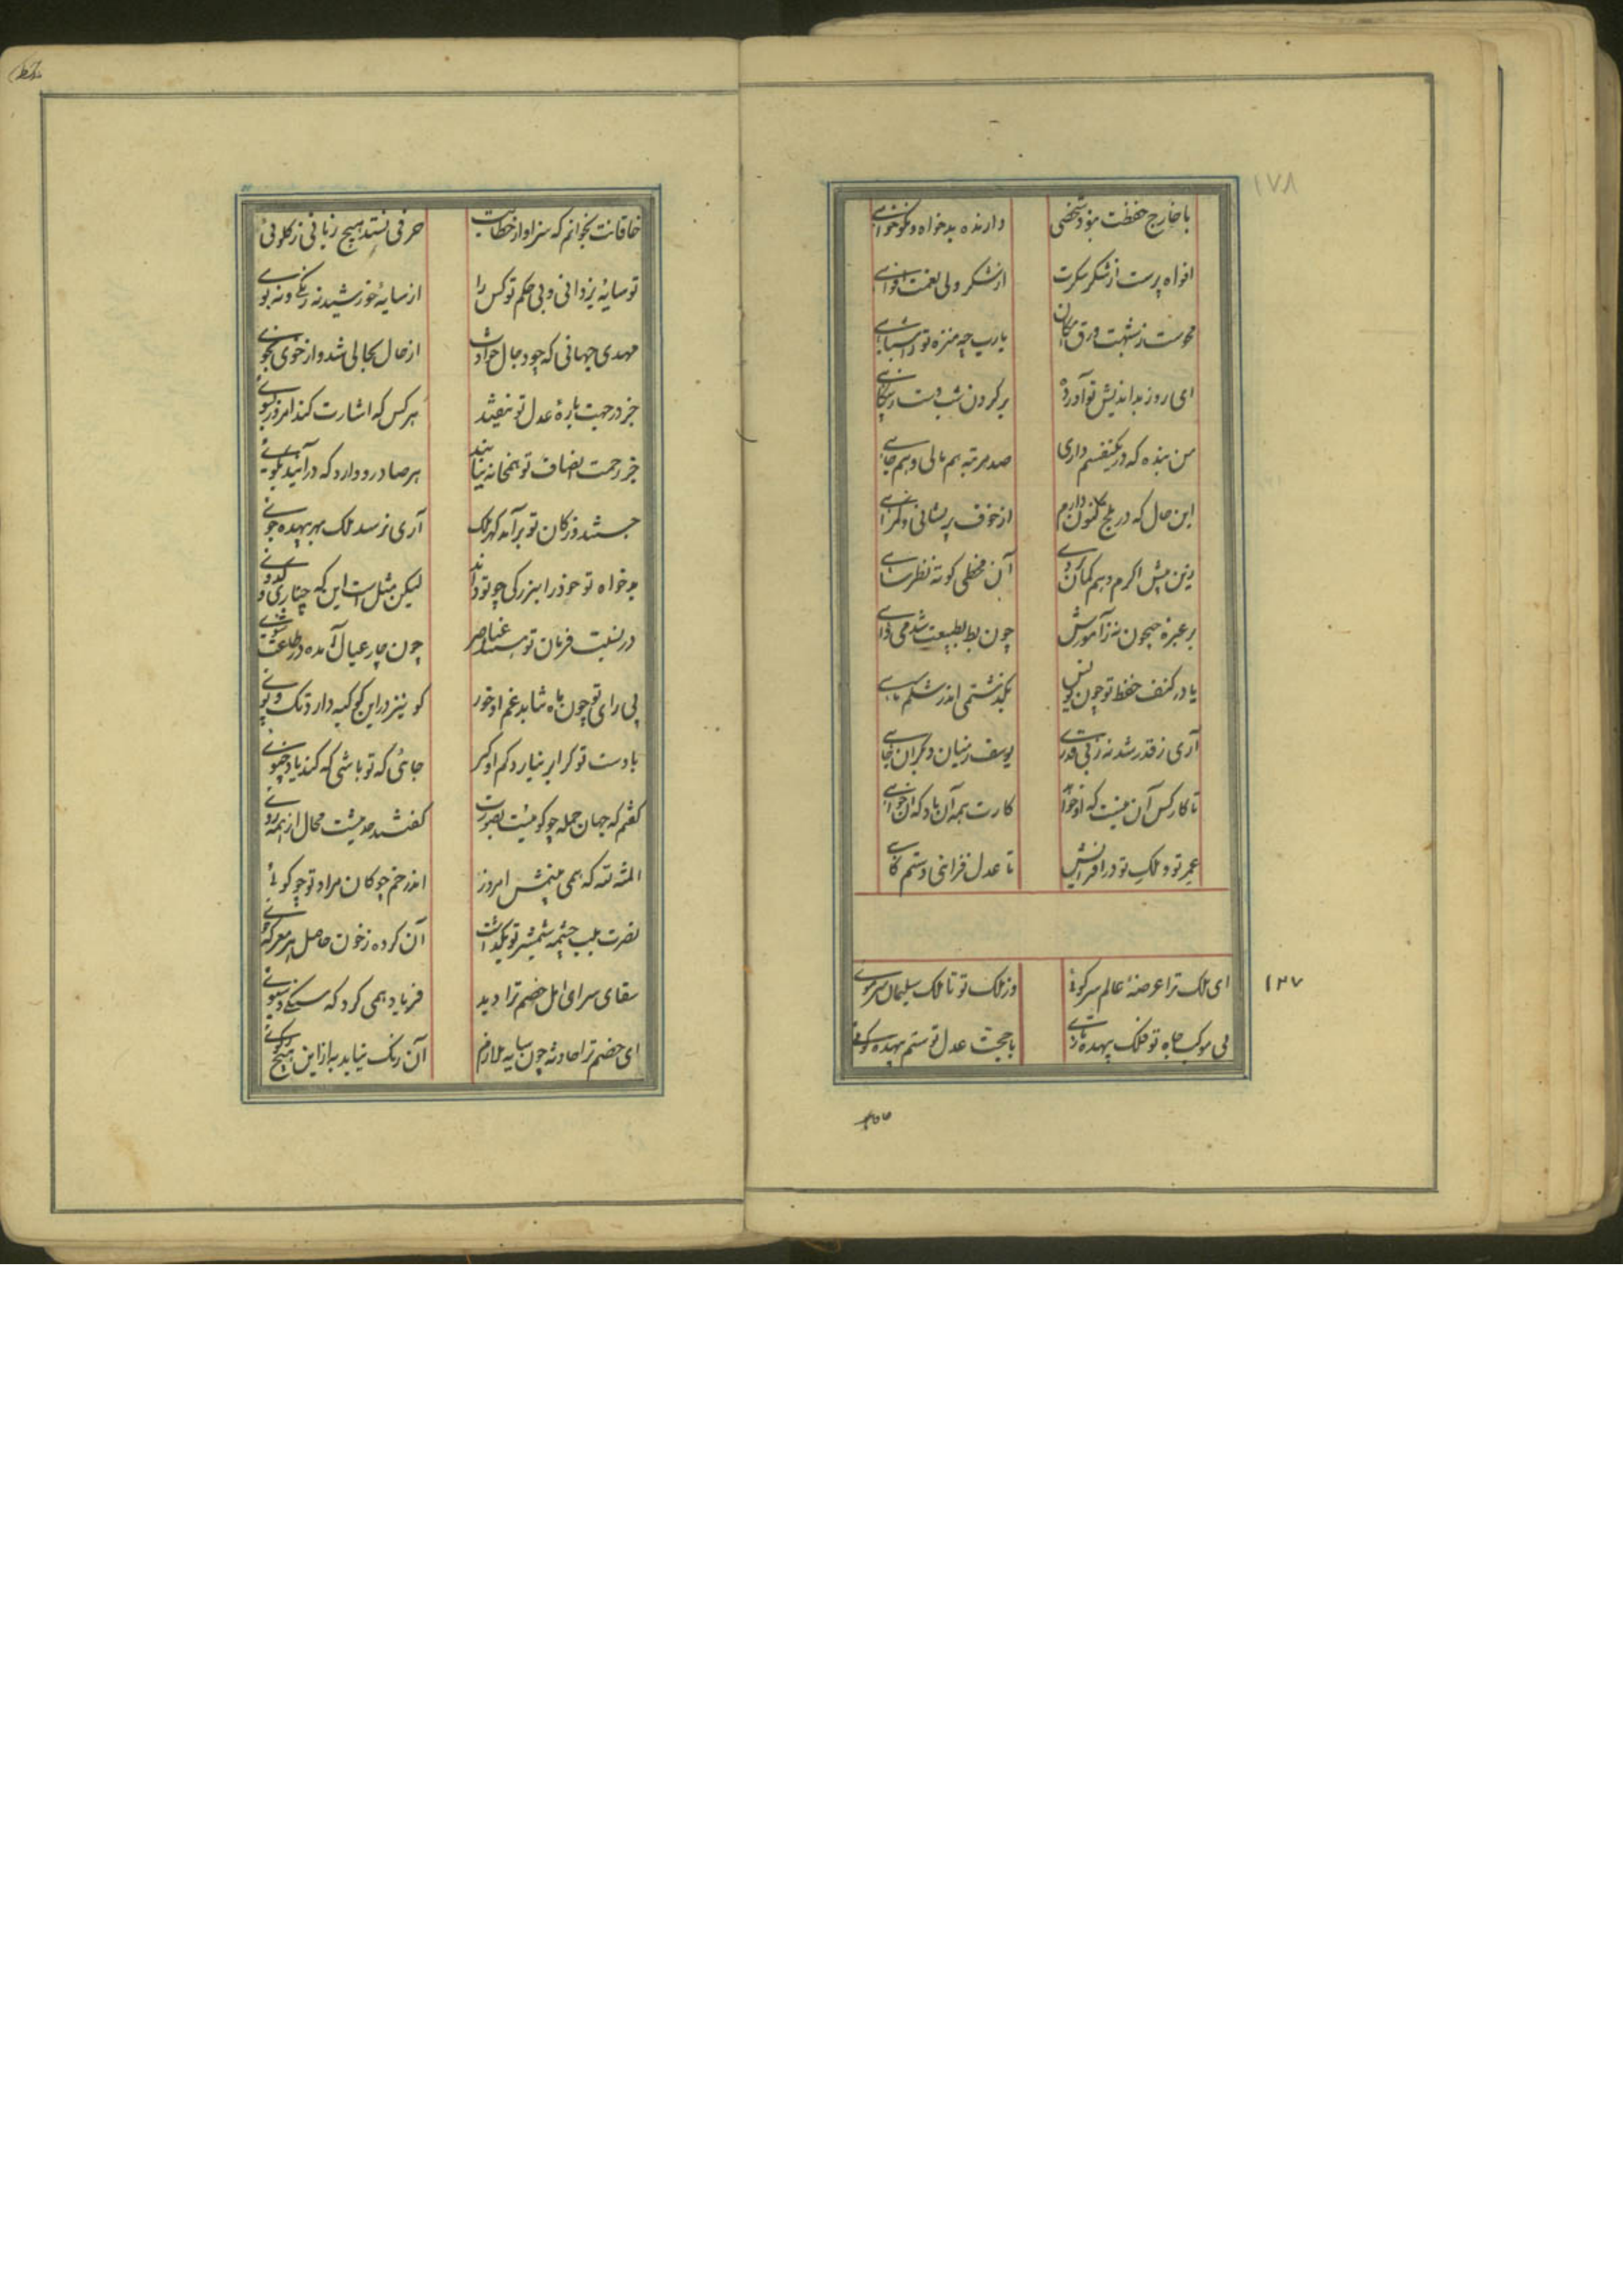 ۱۷۸
با خارج حفظت نبود شخصی دارنده بدخواه و نکوخواه
افواه پرست از شکر شکرت از شکر ولی نعمت
محوست ز شبهت ورق امکان یارب چه منزه تو ز اشباهی
ای روز بداندیش تو آورده بر گردن شب دست
من بنده که در یکنفسم داری صد مرتبه هم مالی و هم جاهی
این حال که در بلخ کنون دارم از خوف پریشانی و
زین پیش اگرم وهم گمان بردی آن مخطی کوته نظر ساهی
بر عبره جیحون نه ز آموزش چون بط بطبیعت شدمی
یا در کنف حفظ تو چون یونس بگذشتمی اندر شکم ماهی
آری ز قدر شد نه ز بی قدری یوسف ز میان دگران چاهی
تا کار کس آن نیست که او خواهد کارت همه آن باد که آن خواهی
عمر تو و ملک تو در افزایش تا عدل فزائی و ستم کاهی
۱۲۷
ای ملک ترا عرصهٔ عالم سر کوئی وز ملک تو تا ملک سلیمان سر موئی
بی موکب جاه تو فلک بیهده تازی با حجت عدل تو ستم بیهده گوئی
خاقانت نخوانم که سزاوار خطابت حرفی نستد هیچ زبانی ز گلوئی
تو سایهٔ یزدانی و بی حکم تو کس را از سایهٔ خورشید نه رنگی و نه بوئی
مهدی جهانی که چو دجال حوادث از حال بحالی شد و از خوی بخوئی
جز در جهت بارهٔ عدل تو نیفتد هر کس که اشارت کند امروز بسوئی
جز رحمت انصاف تو همخانه نیابند هر صادر و وارد که درآیند بکوئی
جستند و ز کان تو برآمد گهر ملک آری نرسد ملک بهر بیهده جوئی
بدخواه تو خود را ببزرگی چو تو داند لیکن مثل است این که چناری و کدوئی
در نسبت فرمان تو عناصر چون چار عیال آمده در طاعت شوئی
بی رای تو چون ماه شاید غم او خور کو نیز در این کوکبه دارد تک و پوئی
با دست تو گر ابر نیارد کم او گیر جائی که تو باشی که کند یاد چنوئی
گفتم که جهان جمله چو گوئیست بصورت گفتند حدیثیست محال از همه روئی
المنة لله که همی بینمش امروز اندر خم چوگان مراد تو چو گوئی
نصرت بلب چشمه شمشیر تو بگذشت آن کرده ز خون حاصل هر معرکه جوئی
سقای سرای امل خصم ترا دید فریاد همی کرد که سنگی و سبوئی
ای خصم ترا حادثه چون سایه ملازم آن رنگ نیاید به از این هیچ